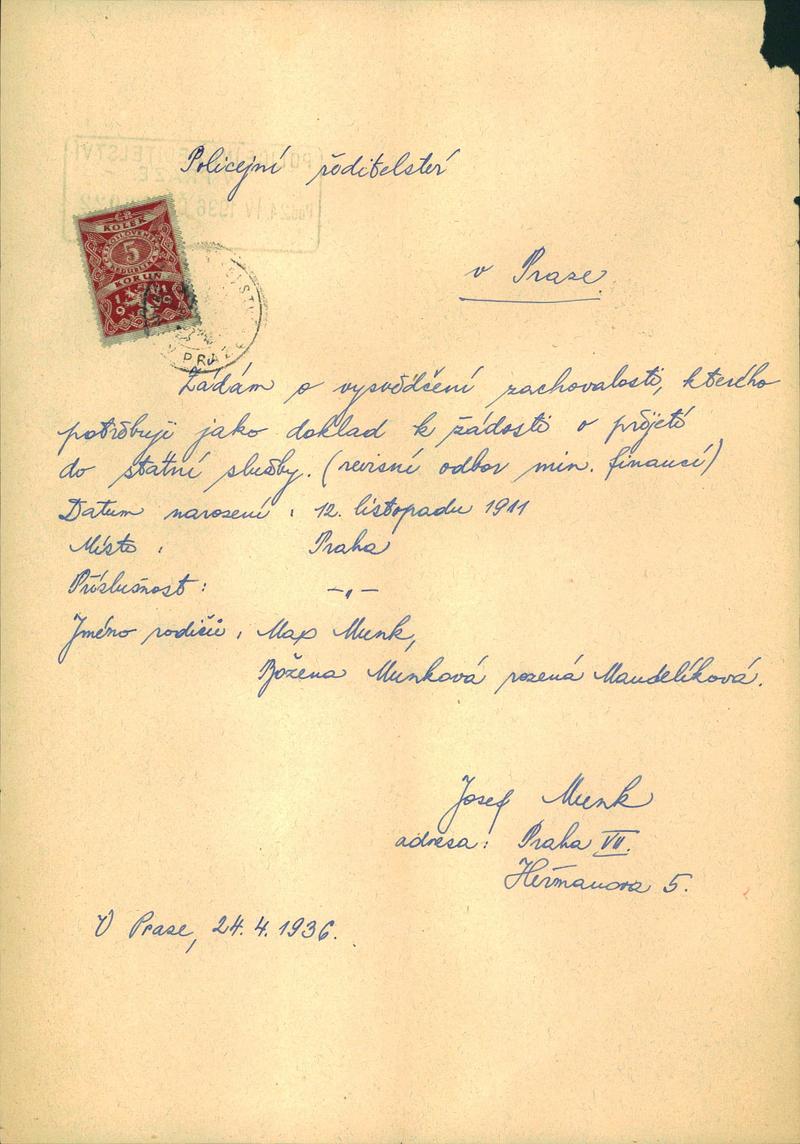 Policejní ředitelství
v Praze.
ČR
KOLEK
5
KORUN
V PRAZE
Žádám o vysvědčení zachovalosti, kterého
potřebuji jako doklad k žádosti o přijetí
do státní služby. (revisní odbor min. financí)
Datum narození : 12. listopadu 1911
Místo : Praha
Příslušnost : -„-
Jméno rodičů : Max Munk,
Božena Munková rozená Mandelíková.
Josef Munk
adresa : Praha VII.
Heřmanova 5.
V Praze, 24. 4. 1936.